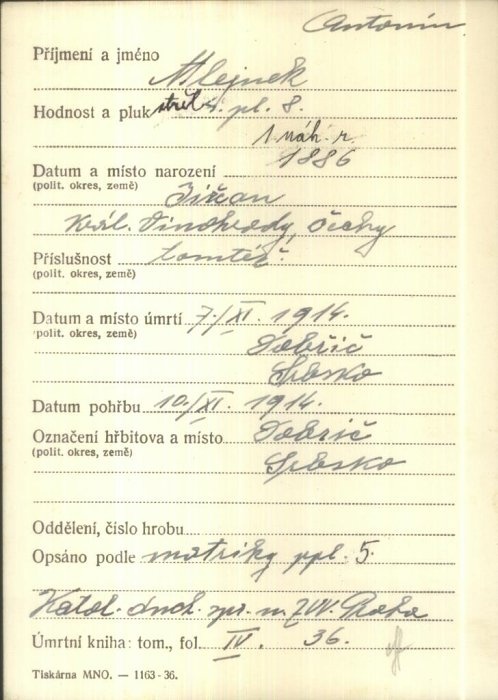 Antonín
Příjmení a jméno
Mlejnek
Hodnost a pluk střel. pl. 8.
1. náh. r.
Datum a místo narození 1886
(polit. okres, země)
Jirčan
Král. Vinohrady, Čechy
Příslušnost tamtéž.
(polit. okres, země)
Datum a místo úmrtí 7./XI. 1914.
(polit. okres, země)
Dobrič
Srbsko
Datum pohřbu 10./XI. 1914.
Označení hřbitova a místo Dobrič
(polit. okres, země)
Srbsko
Oddělení, číslo hrobu
Opsáno podle matriky ppl. 5.
Katol. duch. spr. u ZVV. Praha
Úmrtní kniha: tom., fol. IV. 36.
Tiskárna MNO. — 1163-36.